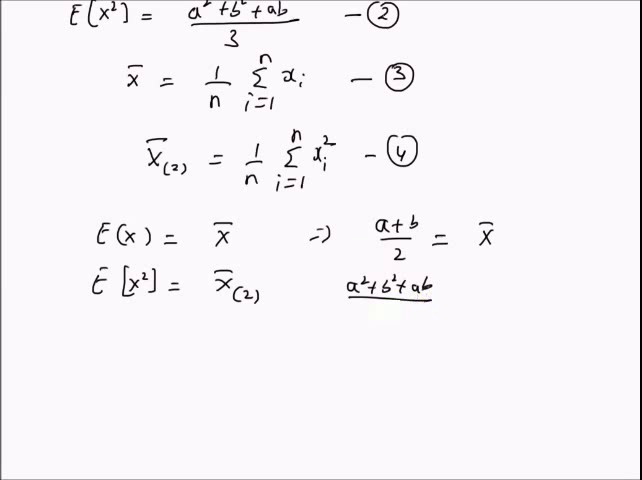 E[x²] = a²+b²+ab / 3 — ②
x̄ = 1/n ∑ᵢ₌₁ⁿ xᵢ — ③
X̄₍₂₎ = 1/n ∑ᵢ₌₁ⁿ xᵢ² — ④
E(x) = X̄ ⇒ a+b / 2 = X̄
E[x²] = X̄₍₂₎ a²+b²+ab